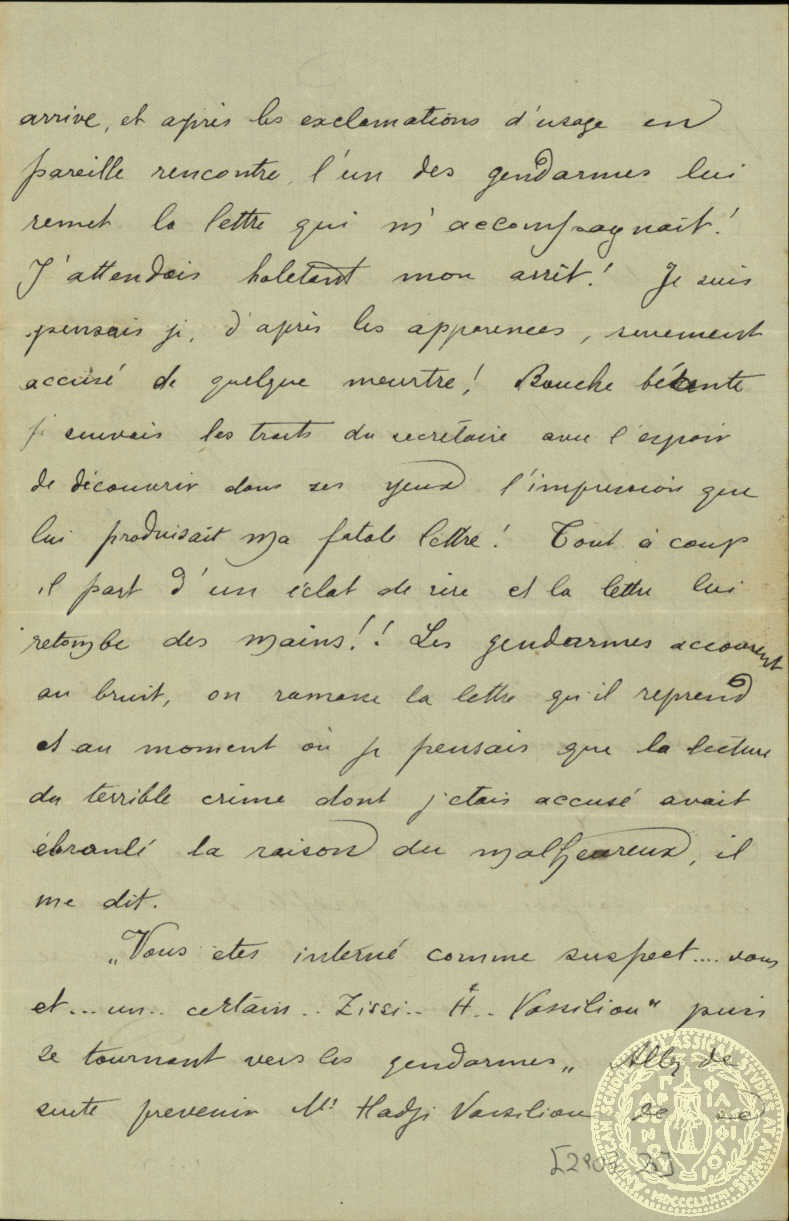 arrive, et après les exclamations d'usage en
pareille rencontre, l'un des gendarmes lui
remet la lettre qui m'accompagnait!
J'attendais haletant mon arrêt! Je suis
pensais je, d'après les apparences, surement
accusé de quelque meurtre! Bouche béante
je suivais les traits du secrétaire avec l'espoir
de découvrir dans ses yeux l'impression que
lui produisait ma fatale lettre! Tout à coup
il part d'un éclat de rire et la lettre lui
retombe des mains!! Les gendarmes accourent
au bruit, on ramasse la lettre qu'il reprend
et au moment où je pensais que la lecture
du terrible crime dont j'etais accusé avait
ébranlé la raison du malheureux, il
me dit.
„Vous etes interné comme suspect.... vous
et... un.. certain.. Zissi.. H.. Vassiliou" puis
se tournant vers les gendarmes„ Allez de
suite prevenir Mr Hadji Vassiliou de
AMERICAN SCHOOL OF CLASSICAL STUDIES AT ATHENS
MDCCCLXXXI